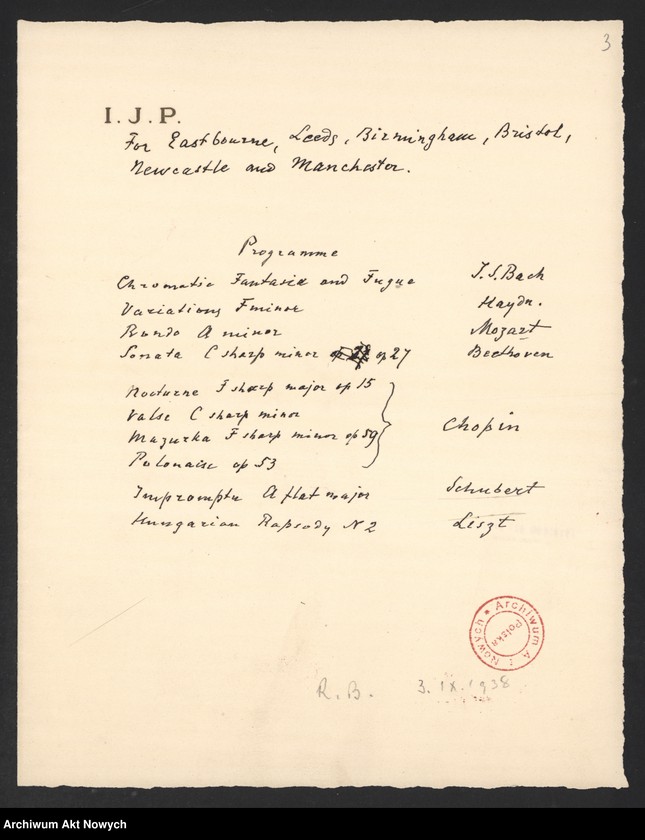 3
I. J. P.
For Eastbourne, Leeds, Birmingham, Bristol,
Newcastle and Manchester.
Programme
Chromatic Fantasia and Fugue J.S.Bach
Variations F minor Haydn.
Rondo A minor Mozart
Sonata C sharp minor op 27 Beethoven
Nocturne F sharp major op 15
Valse C sharp minor
Mazurka F sharp minor op 59 Chopin
Polonaise op 53
Impromptu A flat major Schubert
Hungarian Rapsody N 2 Liszt
Archiwum Akt Nowych
Polska
R. B. 3. IX. 1938
Archiwum Akt Nowych